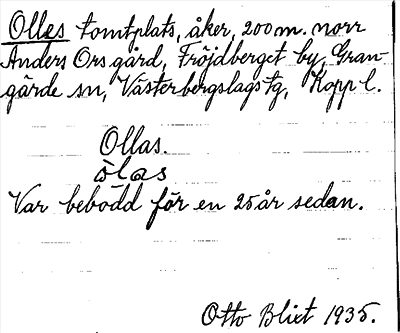 Olles tomtplats, åker, 200 m. norr
Anders Ors gård, Fröjdberget by, Gran-
gärde sn, Västerbergslags tg, Kopp l.
Ollas.
òlas
Var bebodd för en 25 år sedan.
Otto Blixt 1935.